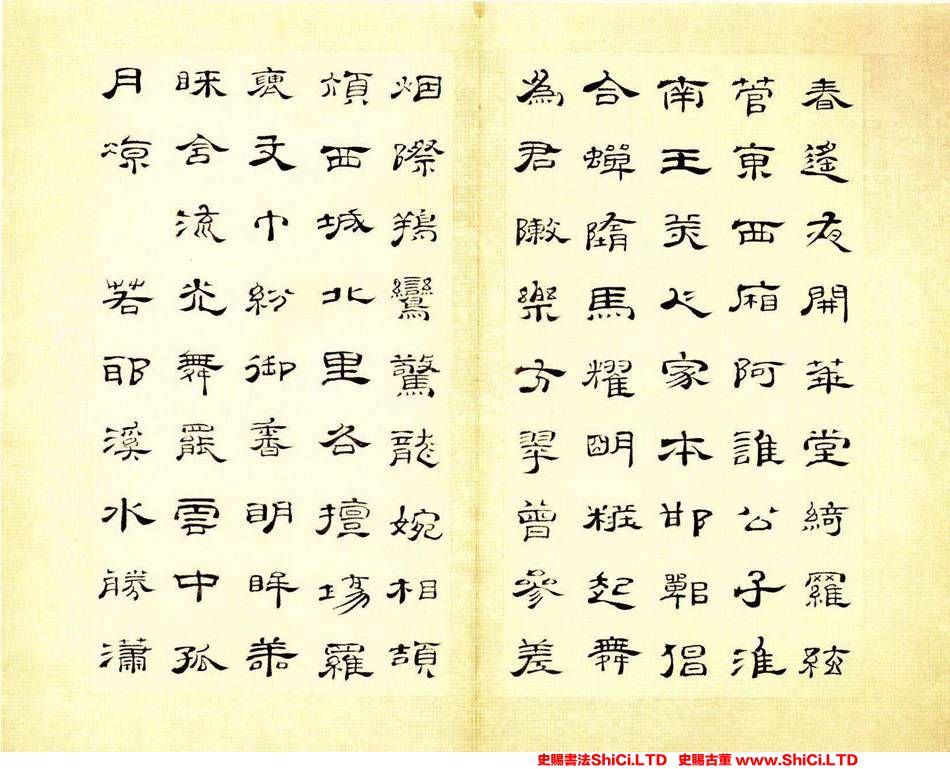 春遙夜開華堂綺羅絃
菅東西廂阿誰公子淮
南王美人家本邯鄲倡
合蟬隋馬耀明糚起舞
為君敶樂方翠曾參差
烟際鸞驚龍婉相頡
頏西城北里各擅場羅
褏文巾紛御香明眸善
睞含流光舞罷雲中孤
月凉 若耶溪水勝瀟
史賜書法ShiCi.LTD 史賜古董 www.ShiCi.LTD